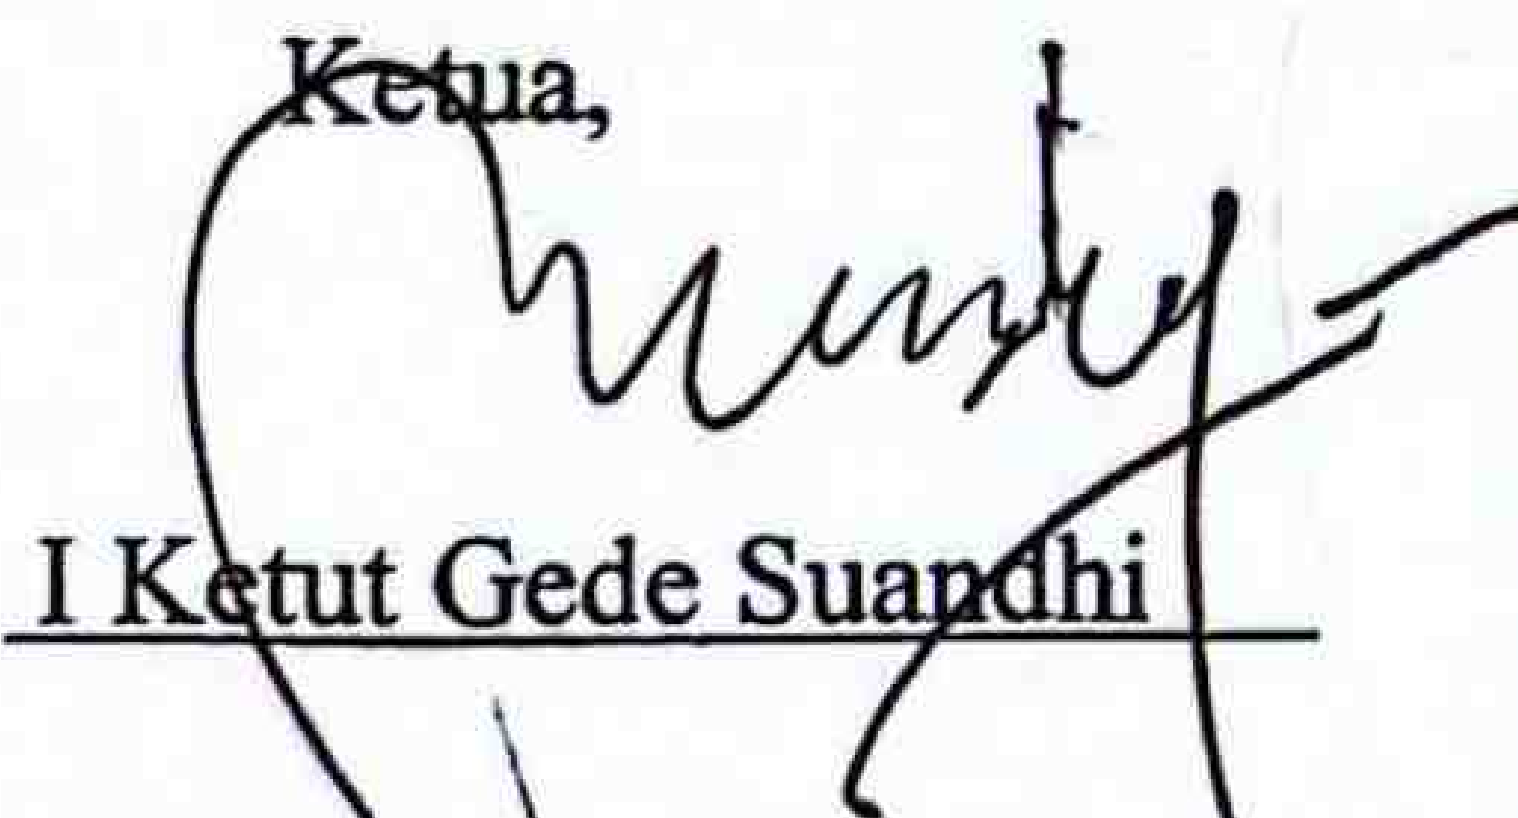 Ketua,
I Ketut Gede Suandhi